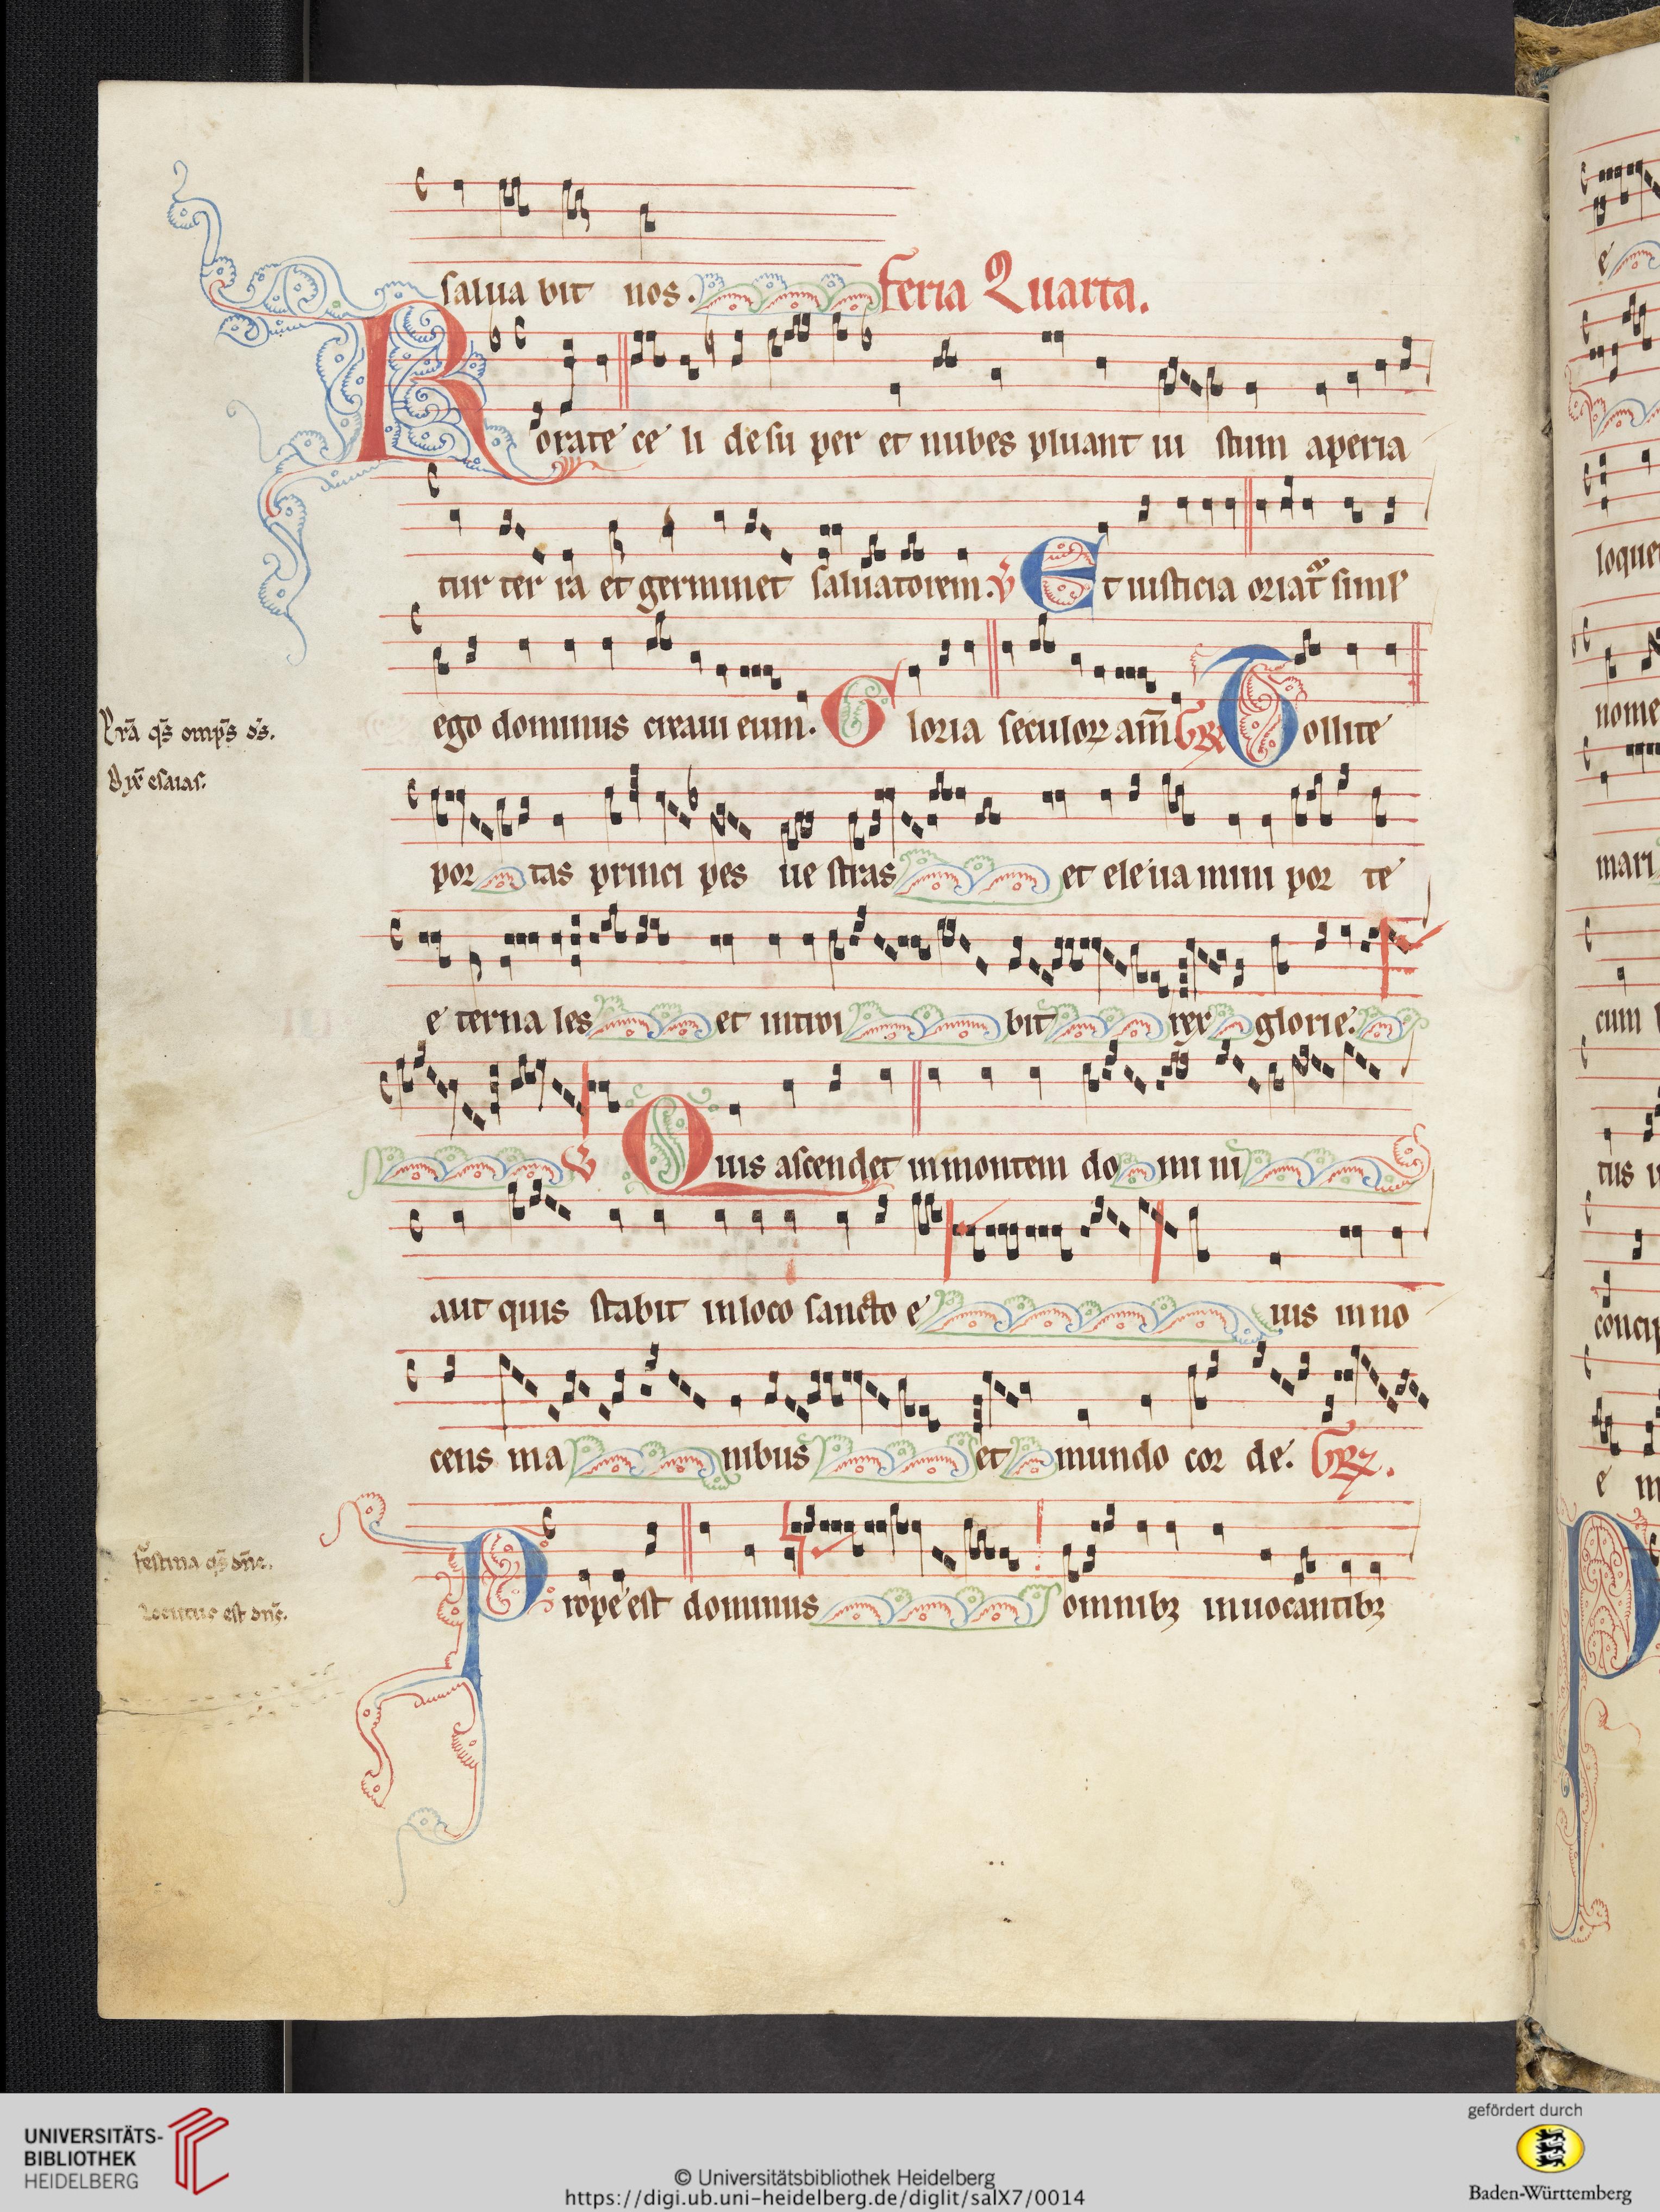 salua bit nos.
Feria Quarta.
Rorate ce li desu per et nubes pluant iu stum aperia
tur ter ra et germinet saluatorem. V Et iusticia oriat͛ simł
ego dominus creaui eum. Gloria seculoꝝ am̄ GR Tollite
Pr̄a qs̄ omp̄s ds̄.
Dix̄ esaias.
por tas princi pes ue stras et eleua mini por te
e terna les et introi bit rex glorie.
V Quis ascendet in montem do mi ni
aut quis stabit in loco sancto e ius inno
cens ma nibus et mundo cor de. GR.
Festina qs̄ dn̄e.
Locutus est dn̄s.
Prope est dominus omnibꝫ inuocantibꝫ
e
loque
nome
mari
cum
tus
concip
e in
UNIVERSITÄTS-
BIBLIOTHEK
HEIDELBERG
© Universitätsbibliothek Heidelberg
https://digi.ub.uni-heidelberg.de/diglit/salX7/0014
gefördert durch
Baden-Württemberg